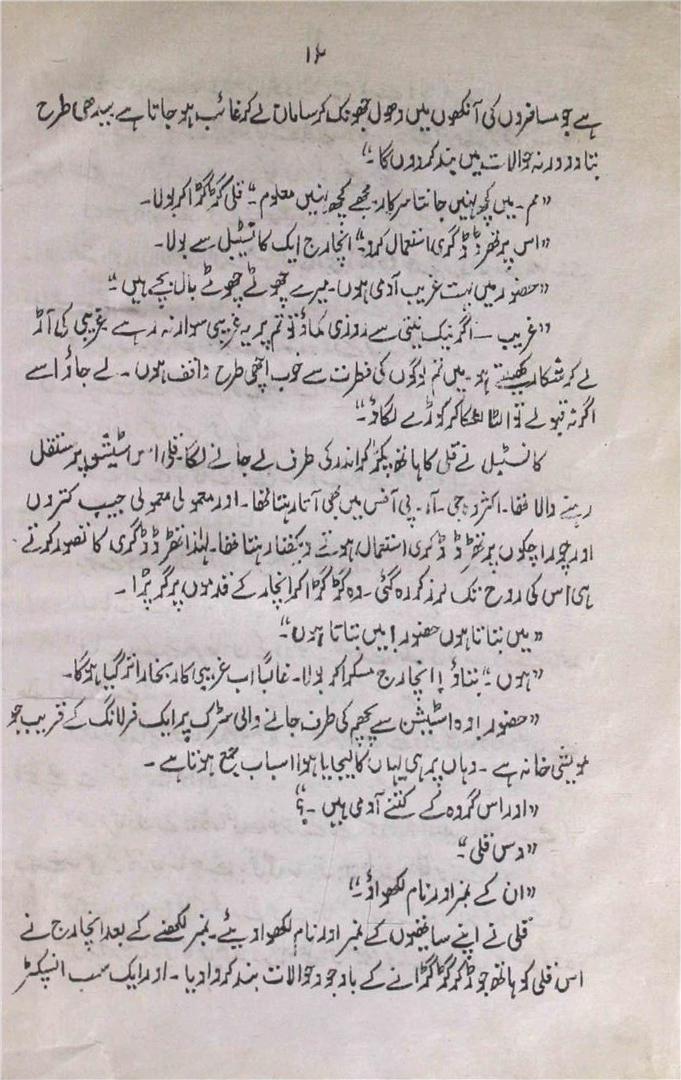 ۱۶
ہے جو مسافروں کی آنکھوں میں دھول جھونک کر سامان لے کر غائب ہو جاتا ہے سیدھی طرح
بتا دو ورنہ حوالات میں بند کر دوں گا۔“
”مم۔ میں کچھ نہیں جانتا سرکار مجھے کچھ نہیں معلوم“۔ قلی گڑگڑا کر بولا۔
”اس پر تھرڈ ڈگری استعمال کرو“۔ انچارج ایک کانسٹیبل سے بولا۔
”حضور میں بہت غریب آدمی ہوں۔ میرے چھوٹے چھوٹے بال بچے ہیں“۔
”غریب۔ اگر نیک نیتی سے روزی کماؤ تو تم پر یہ غریبی سوار نہ رہے غریبی کی آڑ
لے کر شکار کھیلتے ہو۔ میں تم لوگوں کی فطرت سے خوب اچھی طرح واقف ہوں۔ لے جاؤ اسے
اگر نہ قبولے تو الٹا لٹکا کر کوڑے لگاؤ۔“
کانسٹیبل نے قلی کا ہاتھ پکڑ کر اندر کی طرف لے جانے لگا۔ قلی اس اسٹیشن پر مستقل
رہنے والا تھا۔ اکثر وہ جی۔ آر۔ پی آفس میں بھی آتا رہتا تھا۔ اور معمولی معمولی جیب کتروں
اور چور اچکوں پر تھرڈ ڈگری استعمال ہوتے دیکھتا رہتا تھا۔ لہٰذا تھرڈ ڈگری کا تصور کرتے
ہی اس کی روح تک لرز کر رہ گئی۔ وہ گڑگڑا کر انچارج کے قدموں پر گر پڑا۔
”میں بتاتا ہوں حضور! میں بتاتا ہوں“۔
”ہوں“۔ بتاؤ! انچارج مسکرا کر بولا۔ غالباً اب غریبی کا بخار اتر گیا ہوگا۔
”حضور! وہ اسٹیشن سے پچھم کی طرف جانے والی سڑک پر ایک فرلانگ کے قریب جو
مویشی خانہ ہے۔ وہاں پر ہی یہاں کا لیجایا ہوا اسباب جمع ہوتا ہے۔
”اور اس گروہ کے کتنے آدمی ہیں۔؟“
”دس قلی“۔
”ان کے نمبر اور نام لکھواؤ۔“
قلی نے اپنے ساتھیوں کے نمبر اور نام لکھوا دیئے۔ نمبر لکھنے کے بعد انچارج نے
اس قلی کو ہاتھ جوڑ کر گڑگڑانے کے باوجود حوالات بند کروا دیا۔ اور ایک سب انسپکٹر